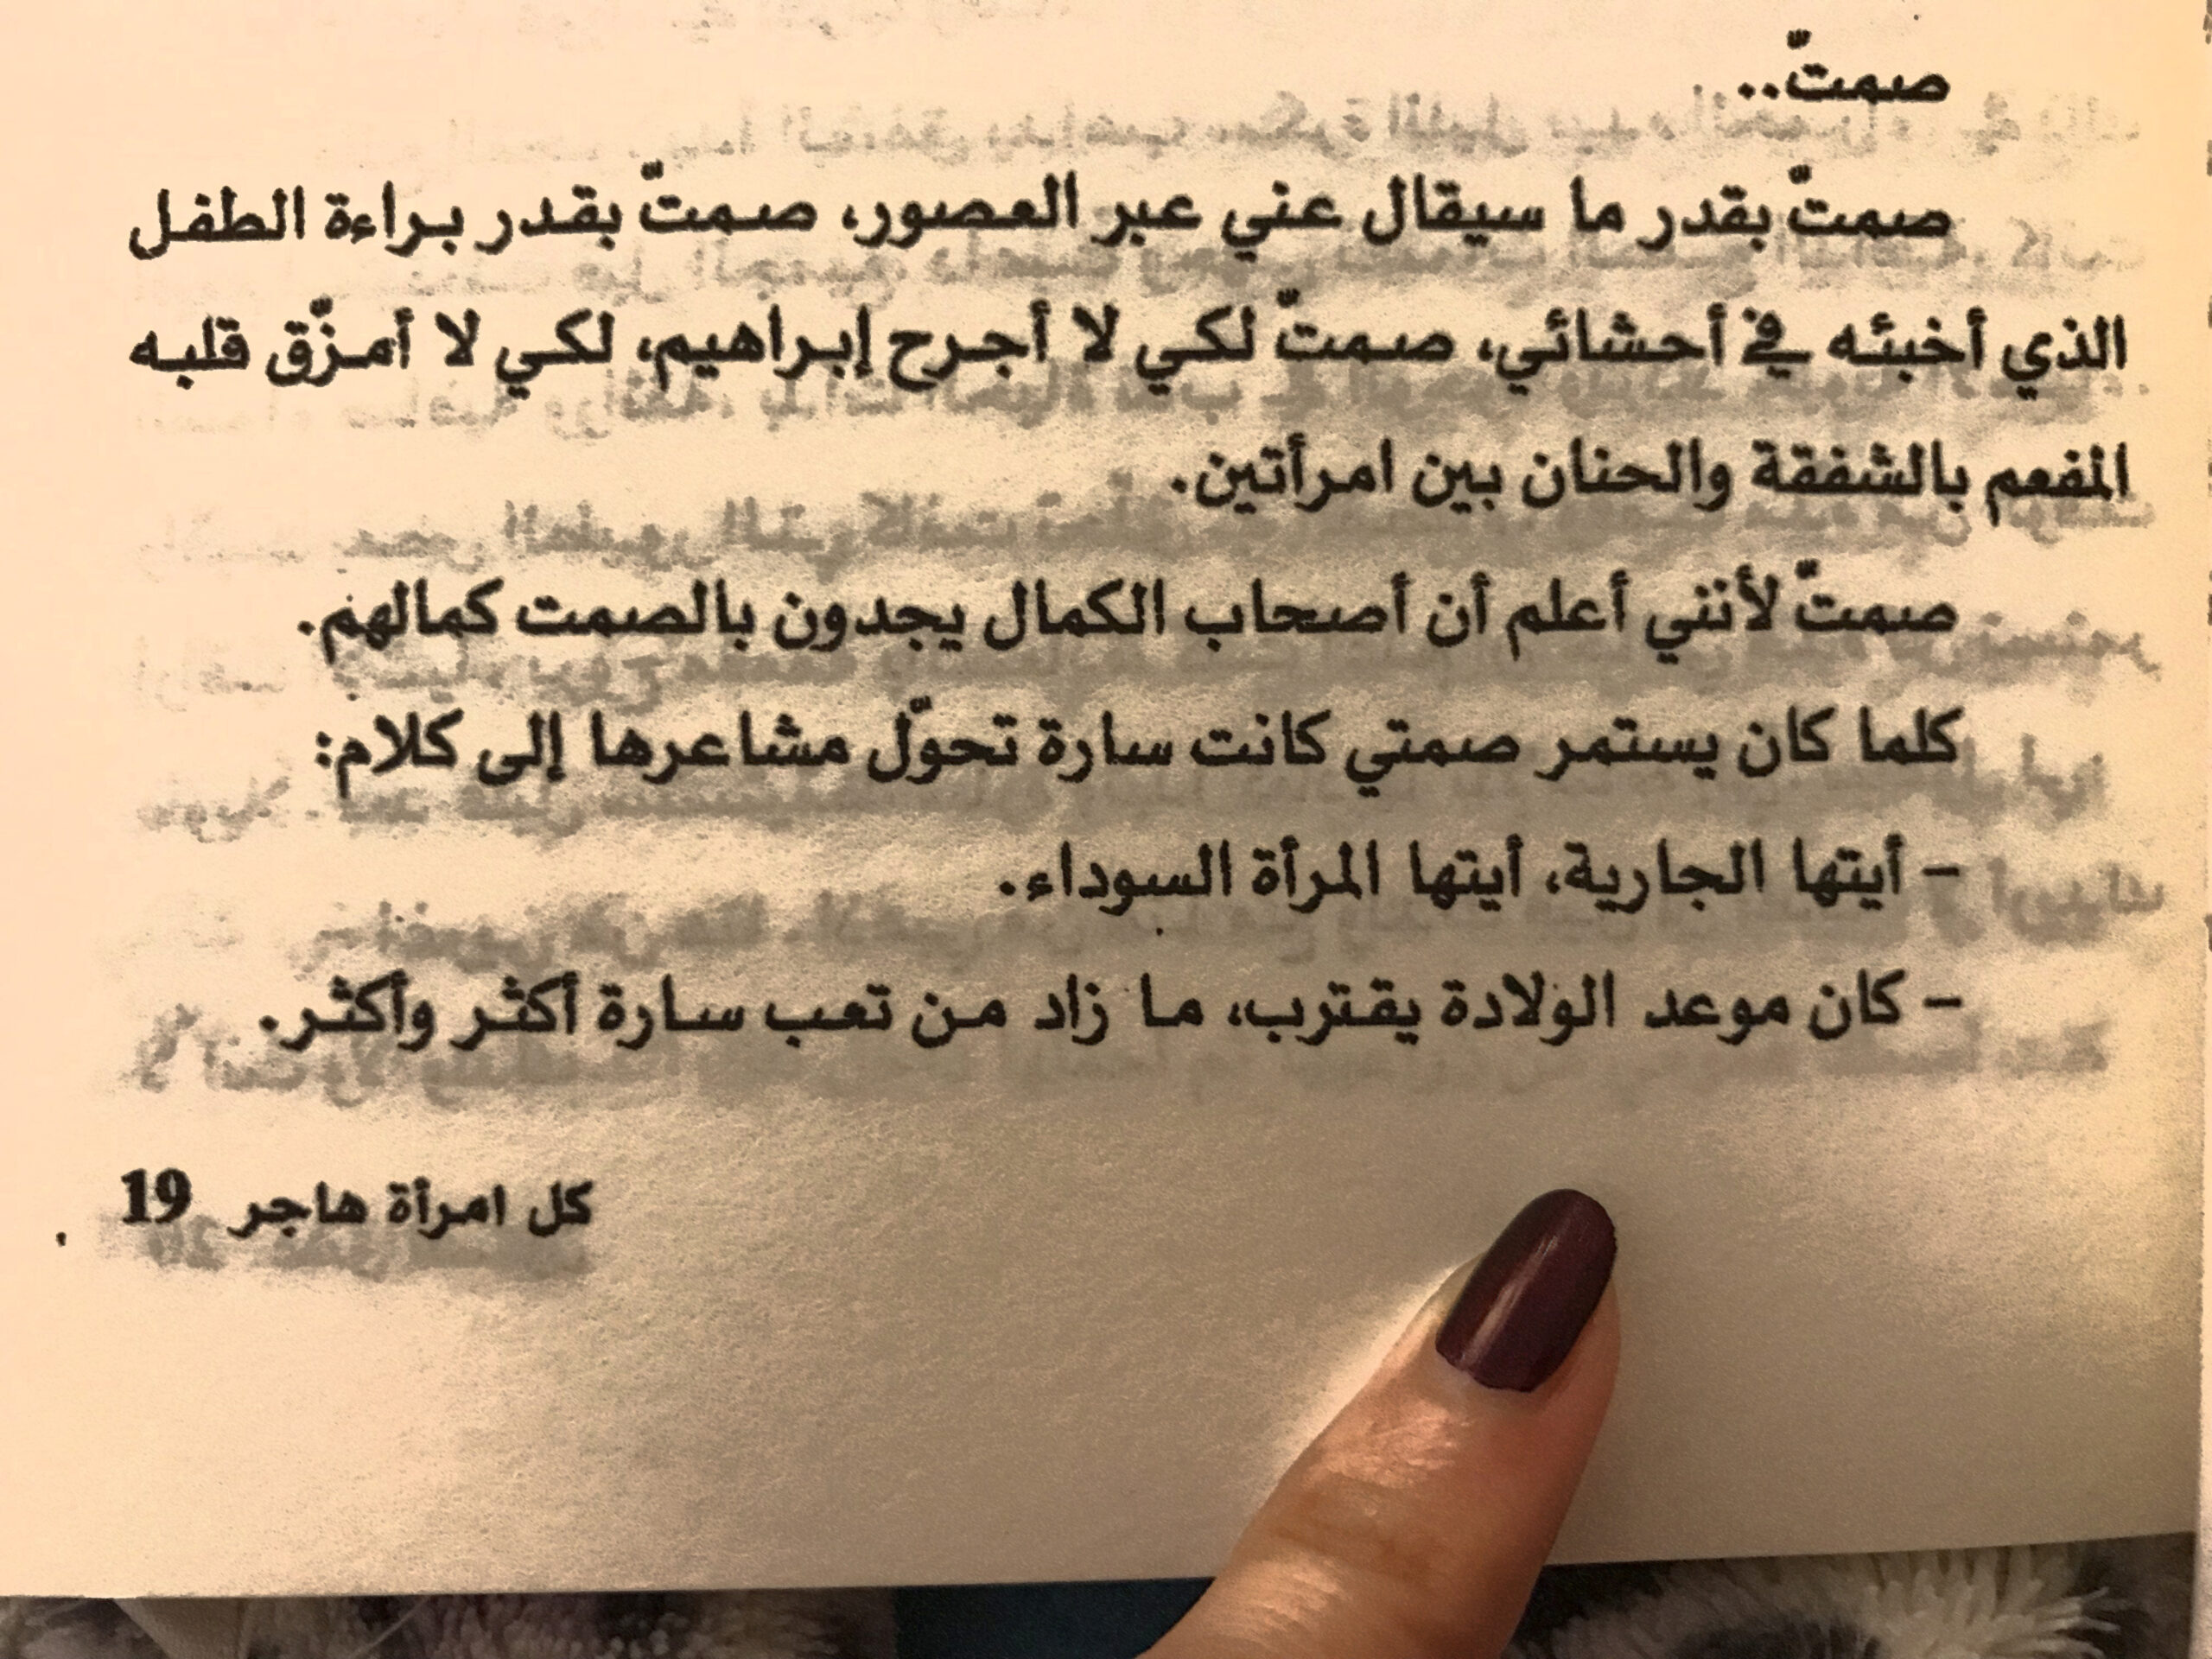 صمتّ..
صمتّ بقدر ما سيقال عني عبر العصور، صمتّ بقدر براءة الطفل
الذي أخبئه في أحشائي، صمتّ لكي لا أجرح إبراهيم، لكي لا أمزّق قلبه
المفعم بالشفقة والحنان بين امرأتين.
صمتّ لأنني أعلم أن أصحاب الكمال يجدون بالصمت كمالهم.
كلما كان يستمر صمتي كانت سارة تحوّل مشاعرها إلى كلام:
– أيتها الجارية، أيتها المرأة السوداء.
– كان موعد الولادة يقترب، ما زاد من تعب سارة أكثر وأكثر.
كل امرأة هاجر 19